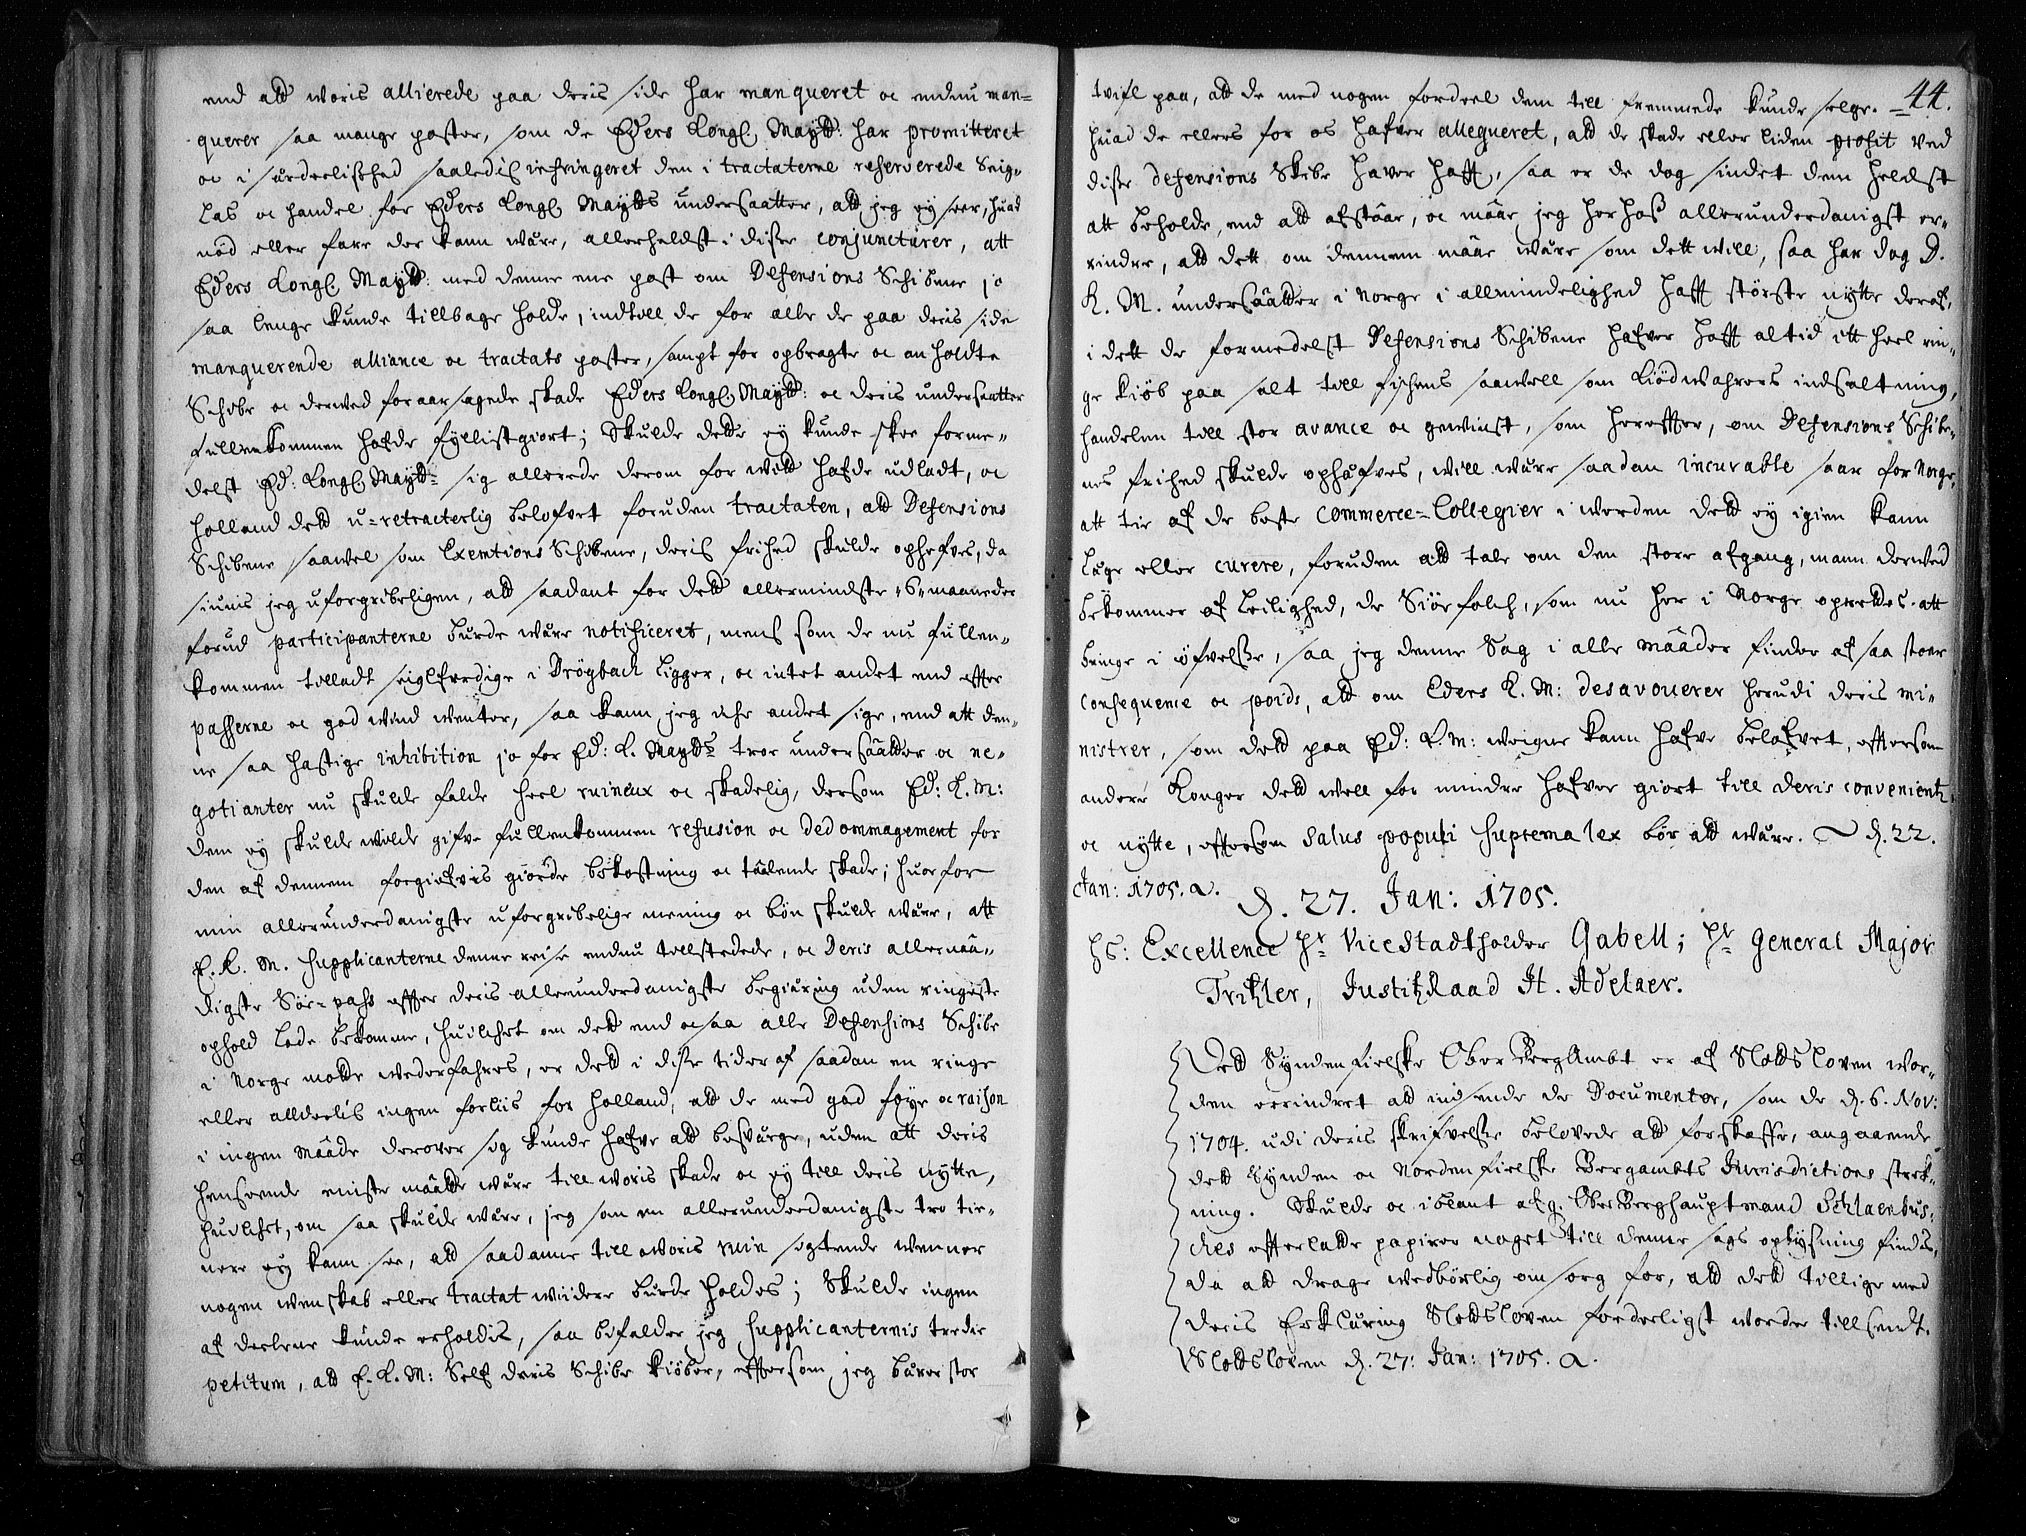 end att woris allierede paa deris side har manqueret oc endnu man=
querer saa mange poster, som de Eders Kongl. Maytt: har promitteret
oc i særdeelished saaledis infringeret den i tractaterne reserverede Seig-
las oc handel for Eders Kongl. Maytts undersaatter, att jeg ey seer, huad
nöd eller fare der kann være, allerheldst i disse conjuncturer, att
Eders Kongl. Maytt: med denne ene post om Defensions Schibene jo
saa lenge kunde tillbage holde, indtill de for alle de paa deris side
manquerende alliance oc tractats poster, sampt for opbragte oc anholdte
Schibe oc derved foraarsagede skade Eders Kongl. Maytt: oc deris undersaatter
fullenkommen hafde fyllistgiort; Skulde dette ey kunde skee forme-
delst Ed: Kongl. Maytt: sig allerede derom for witt hafde udladt, oc
Holland dett u=retracterlig belofvet foruden tractaten, att Defensions
Schibene saavel som Exemtions Schibene, deris frihed skulde ophefves, da
siunis jeg uforgribeligen, att saadant for dett allermindste 6 maaneder
forud participanterne burde være notificeret, mens som de nu fullen-
kommen tilladt seiglferdige i Dröybach ligger, oc intet andet end effter
passerne oc god wind wenter, saa kann jeg icke andet sige, end att den-
ne saa hastige inhibition jo for Ed: K. Maytts troe undersaatter oc ne-
gotianter nu skulde falde heel ruineux oc skadelig, dersom Ed: K. M:
dem ey skulde wilde gifve fullenkommen refusion oc dedommagement for
den af dennem forgiefvis giorde bekostning oc taalende skade; huorfor
min allerunderdanigste uforgribelige mening oc bön skulde være, att
E. K. M. supplicanterne denne reise endnu tillstedede, oc Deris allernaa-
digste Söe-pass effter deris allerunderdanigste begiæring uden ringeste
ophold lode bekomme, huilchet om dett end ocsaa alle Defensions Schibe
i Norge motte wederfahres, er dett i disse tider af saadan en ringe
eller alldeelis ingen forliis for Holland, att de med god föye oc raison
i ingen maade derover sig kunde hafve att besværge, uden att deris
henseende eniste maatte være till woris skade oc ey till deris nytte,
huilchet, om saa skulde være, jeg som en allerunderdanigste tro tie-
nere ey kann see, att saadanne till woris ruin sigtende wenner
nogen wenskab eller tractat wiidere burde holdes; Skulde ingen
af deelene kunde erholdis, saa befalder jeg supplicanternis tredie
petitum, att E. K. M: Self deris Schibe kiöber, effersom jeg bærer stor
44.
tvifl paa, att de med nogen fordeel dem till fremmede kunde selge.
huad de ellers for os hafver allegueret, att de skade eller liden profit ved
disse Defensions Skibe haver hafft, saa er de dog sindet dem heldst
att beholde, end att afstaae, oc maae jeg herhos allerunderdanigst er-
rindre, att dett om dennem maae være som dett will, saa har dog D.
K. M. undersaatter i Norge i allmindelighed hafft störste nytte deraf,
i dett de formedelst Defensions Schibene hafver hafft altid ett heel rin-
ge kiöb paa salt till fischens saawell som Kiödwahrers indsaltning,
handelen till stor avance oc gewinst, som hereffter, om Defensions Schibe-
nes frihed skulde ophæfves, will være saadan incurable saar for Norge,
att tie af de beste Commerce=Collegier i werden dett ey igien kann
læge eller curere, foruden att tale om den store afgang, mann derved
bekommer af leilighed, de Siöefolch, som nu her i Norge oprettes att
bringe i öfvelse, saa jeg denne Sag i alle maader finder af saa stoer
consequence oc poids, att om Eders K. M: desavouerer herudi deris mi-
nistrer, som dett paa Ed: K. M: weigne kann hafve belofvet, effersom
andere Konger dett well for mindre hafver giort till deris convenientz
oc nytte, effersom Salus populi suprema lex bör att være. D. 22.
Jan: 1705.
D. 27. Jan: 1705.
Hs: Excellence Hr ViceStadtholder Gabell; Hr General Major
Tritzler, JustitzRaad H. Adelaer.
Dett Syndenfielske OberBergAmbt er af Slottsloven wor-
den errindret att indsende de Documenter, som de d. 6. Nov:
1704. udi deris skrifvelse belovede att forskaffe, angaaende
dett Synden oc Nordenfielske Bergambts Jurisdictions strek-
ning. Skulde oc iblant afg. OberBerghauptmand Schlaenbus-
ches effterlatte papirer noget till denne sags oplysning findes,
da att drage wedbörlig omsorg for, att dett tillige med
deris Erklæring Slottsloven forderligst worder tillsendt.
Slottsloven d. 27: Jan: 1705.